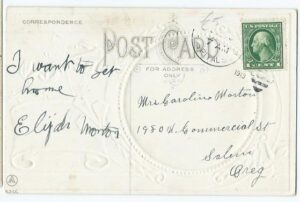 CORRESPONDENCE
POST CARD
FOR ADDRESS
ONLY
I want to get
home
Elijah Morton
Mrs Caroline Morton
1980 W. Commercial St
Salem
Oreg